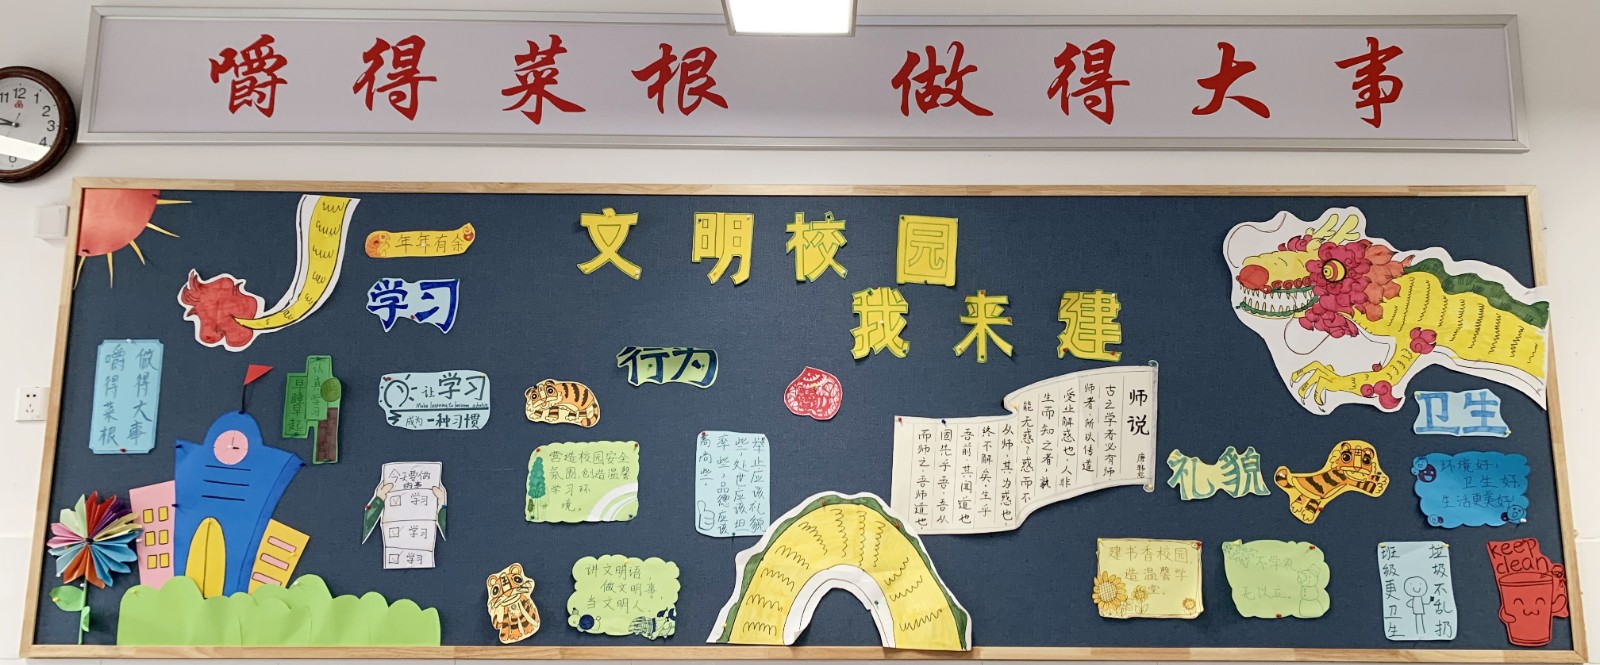 嚼得菜根 做得大事
文明校园
我来建
年年有余
学习
嚼得菜根
做得大事
认真学习
早睡早起
让学习
Make learning to become a habit
成为一种习惯
今天要做
学习
学习
学习
行为
营造校园安全
氛围,创造温馨
学习环
境。
讲文明语,
做文明事,
当文明人。
举止应该礼貌
些,处世应该坦
率些,品德应该
高尚些,
师说
唐·韩愈
古之学者必有师。
师者,所以传道
受业解惑也。人非
生而知之者,孰
能无惑?惑而不
从师,其为惑也,
终不解矣。生乎
吾前,其闻道也
固先乎吾,吾从
而师之;吾师道也,
礼貌
卫生
环境好,
卫生好,
生活更美好!
建书香校园
造温馨学
堂。
不学礼
无以立。
垃圾不乱扔
班级更卫生
keep
clean
11 12 1 2 3 4 6